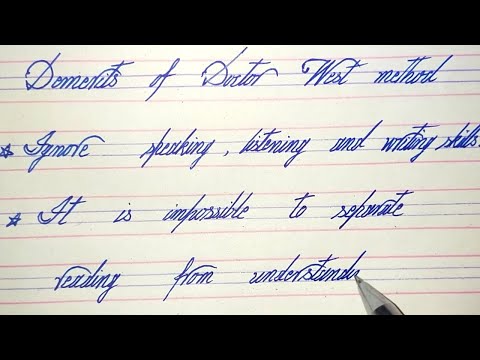 Demerits of Doctor West method
* Ignore speaking, listening and writing skills.
* It is impossible to separate
reading from understandi